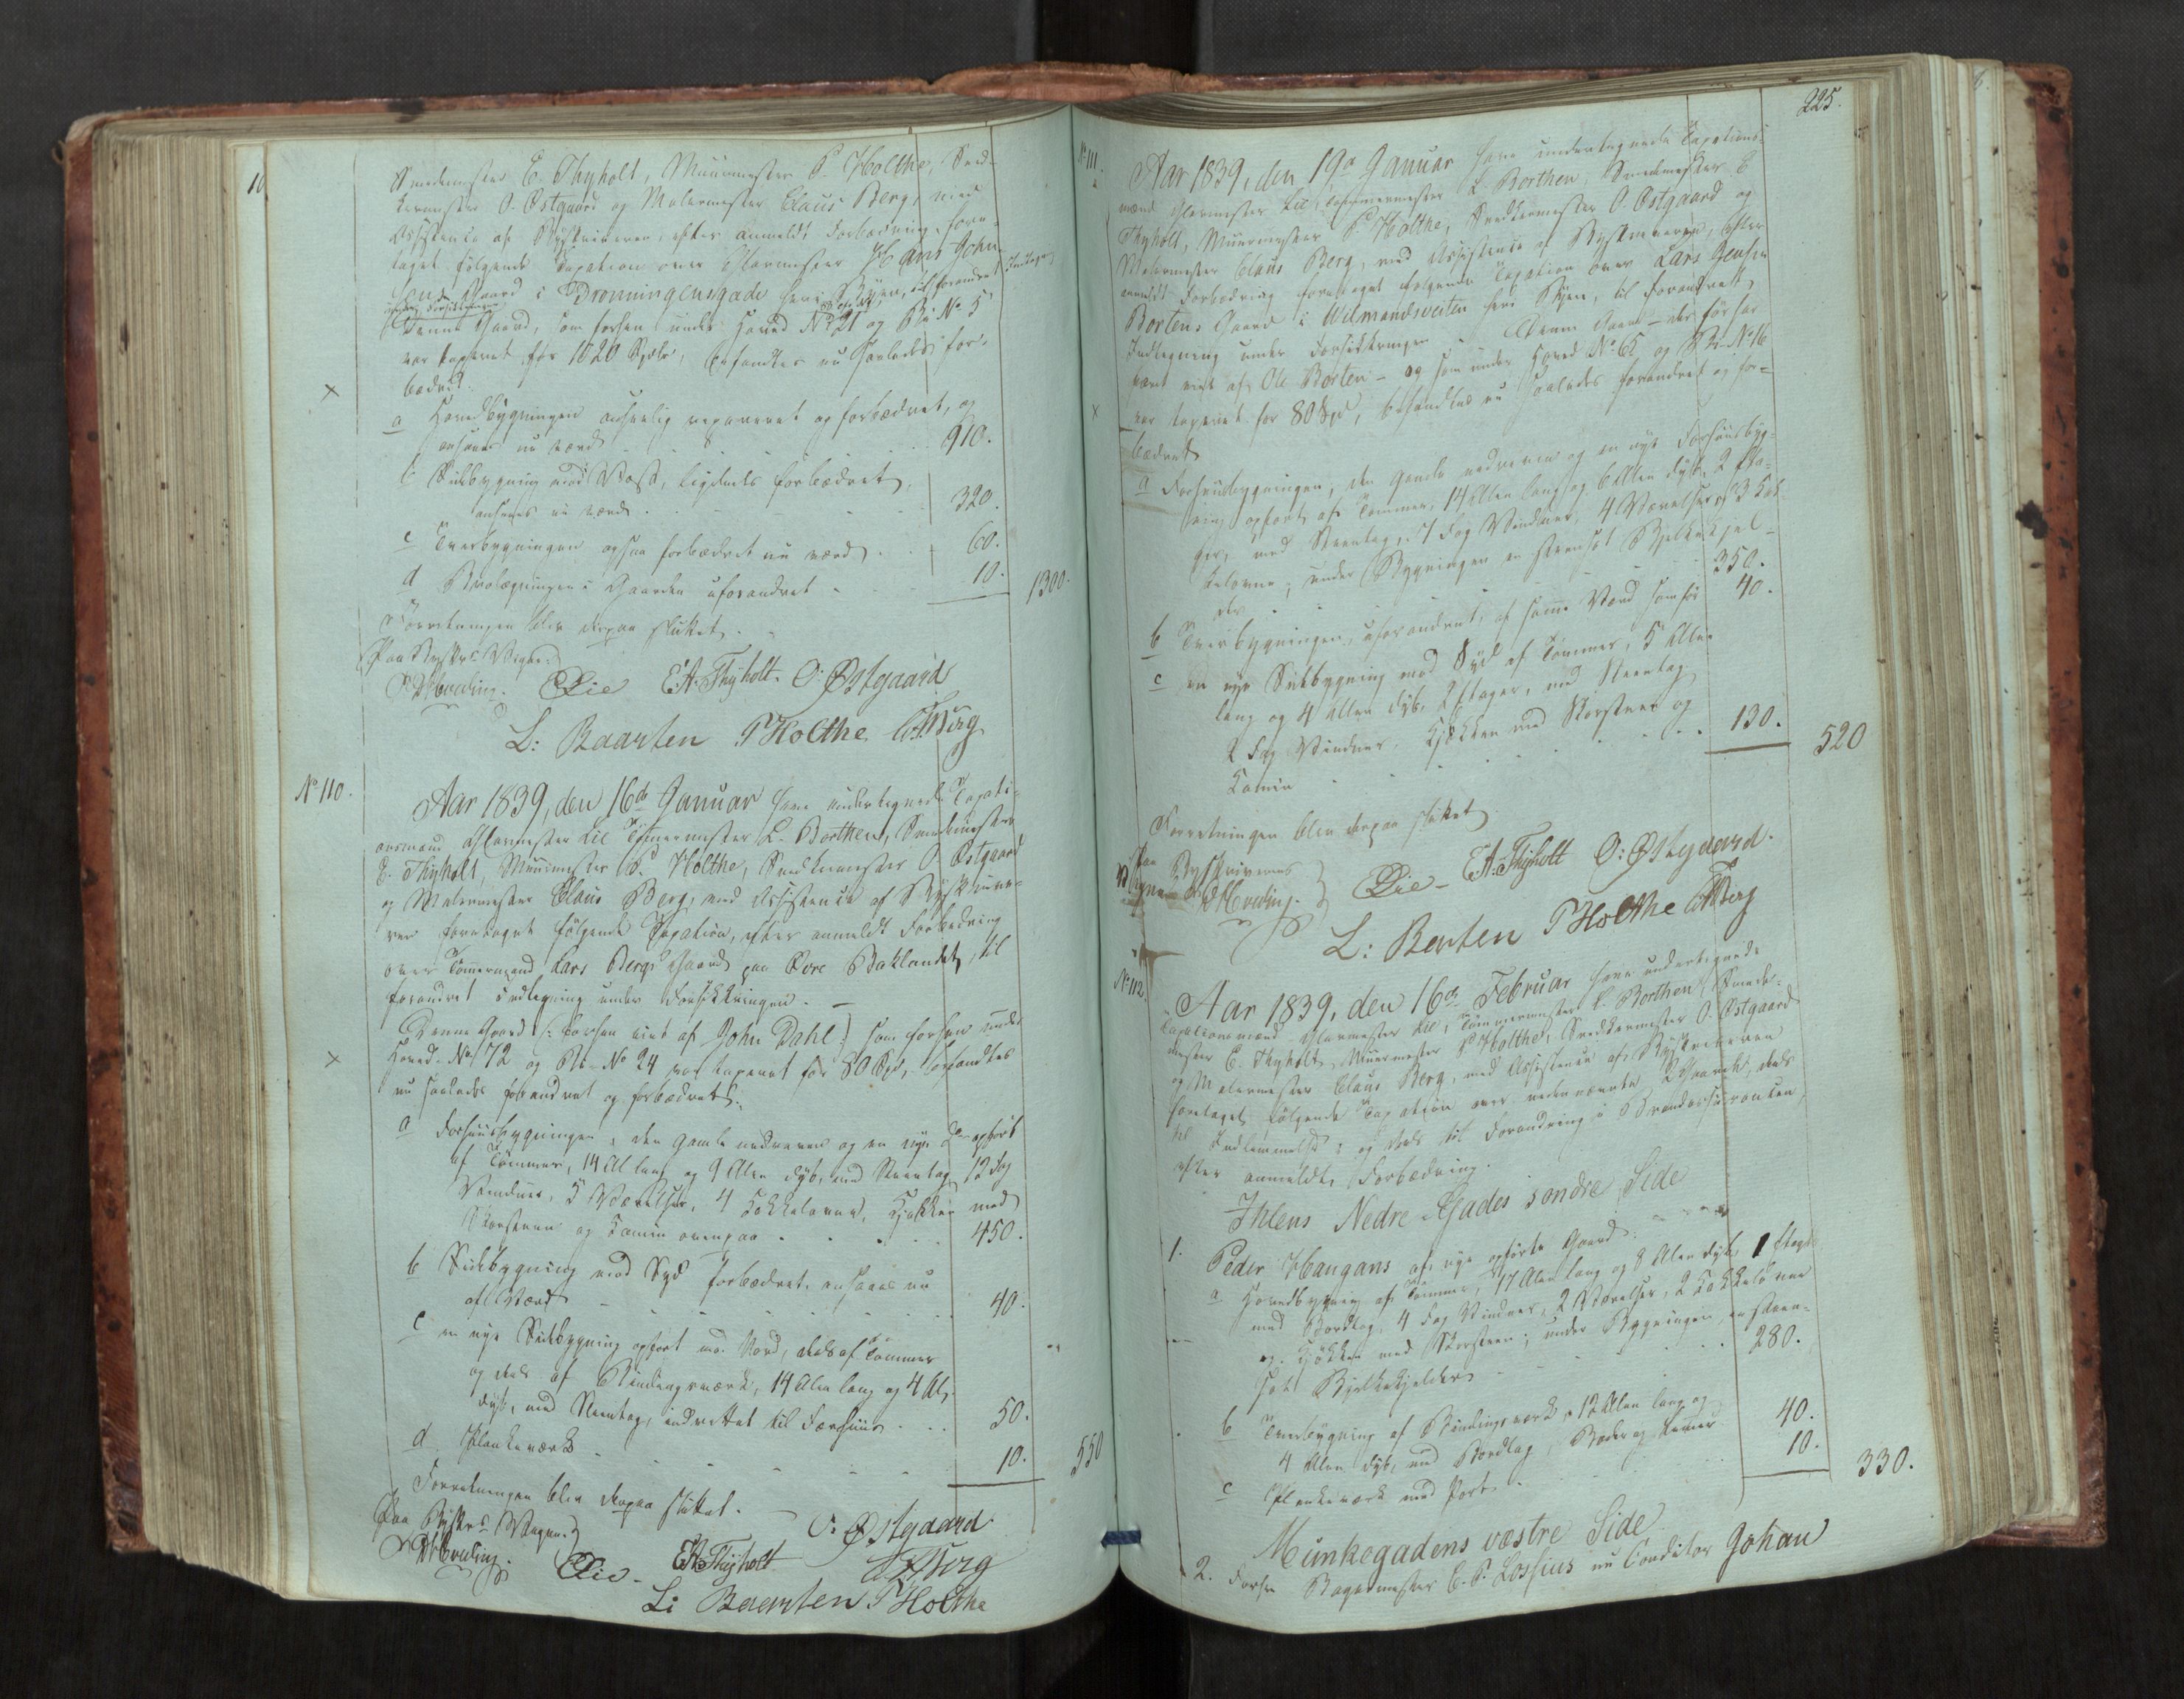 Smedemester E. Thyholt, Muurmester P. Holthe, Sned-
kermester O. Østgaard og Malermester Claus Berg, med
Assistence af Byskriveren, efter anmeldt Forbedring, fore-
taget følgende Taxation over Glarmester Hans John
sens Gaard i Dronningensgade her i Byen, til forandret Indtegn
under Forsikkringen
Denne Gaard, som forhen under Hoved No 21 og Bi No 5
var taxeret for 1020 Spdlr, befandtes nu saaledes for-
bedret.
a Hovedbygningen anseelig repareret og forbedret, og
ansees nu værd . . . 910.
b Sidebygning mod Vest, ligeledes forbedret
ansees nu værd . . . 320.
c Tverbygningen ogsaa forbedret nu værd . . 60.
d Brolægningen i Gaarden uforandret . . 10. 1300.
Forretningen blev derpaa sluttet.
Paa Byskrs Vegne
Lie E.A. Thyholt. O: Østgaard
L: Baarten P Holthe C. Berg
No 110.
Aar 1839, den 16de Januar have undertegnede Taxati-
onsmænd Glarmester Lie Tømmermester L. Borthen, Smedemester
E. Thyholt, Muurmester P. Holthe, Snedkermester O. Østgaard
og Malermester Claus Berg, med Assistence af Byskrive-
ren foretaget følgende Taxation, efter anmeldt Forbedring
over Tømmermand Lars Bergs Gaard paa Øvre Baklandet, til
forandret Indtegning under Forsikkringen. —
Denne Gaard (: forhen eiet af John Dahl:) som forhen under
Hoved-No 172 og Bi-No 24 var taxeret for 80 Spd, befandtes
nu saaledes forandret og forbedret:
a Forhuusbygningen, den gamle nedreven og en nye Do opført
af Tømmer, 14 Al lang og 9 Alen dyb, med Steentag, 12 Fag
Vinduer, 5 Værelser, 4 Kakkelovne, Kjøkken med
Skorsteen og Kamin ovenpaa . . . 450.
b Sidebygning mod Syd forbedret, ansees nu
af Værd . . . 40.
c en nye Sidebygning opført mod Nord, deels af Tømmer
og deels af Bindingsværk, 14 Alen lang og 4 Al.
dyb, med Steentag, indrettet til Fæehuus . . 50.
d Plankeværk . . . 10. 550
Forretningen blev derpaa sluttet.
Paa Byskrs Vegne
O: Østgaard
Lie - E.A. Thyholt C. Berg
L: Baarten P Holthe
225.
No 111.
Aar 1839, den 19de Januar have undertegnede Taxations-
mænd Glarmester Lie, Tømmermester L. Borthen, Smedemester E
Thyholt, Muurmester P. Holthe, Snedkermester O. Østgaard og
Malermester Claus Berg, med Assistence af Byskriveren, efter
anmeldt Forbedring foretaget følgende Taxation over Lars Jensen
Bortens Gaard i Wilmandsveiten her i Byen, til forandret
Indtegning under Forsikkringen. Denne Gaard – der før har
været eiet af Ole Borten – og som under Hoved No 65 og Bi-No 16
var taxeret for 80 Spd, befandtes nu saaledes forandret og for-
bedret
a Forhuusbygningen, den gamle nedreven og en nye Forhuusbyg-
ning opført af Tømmer, 14 Alen lang og 6 Alen dyb, 2 Eta-
ger, med Steentag, 7 Fag Vinduer, 4 Værelser og 3 Kak
kelovne; under Bygningen en steensat Bjelkekjel-
der . . . 350.
b Tverbygningen, uforandret, af samme Værd som før 40.
c En nye Sidebygning mod Syd af Tømmer, 5 Alen
lang og 4 Alen dyb, 2 Etager, med Steentag
2 Fag Vinduer, Kjøkken med Skorsteen og
Kamin . . . 130. 520
Forretningen blev derpaa sluttet
Paa Byskriverens
Vegne
Lie - E.A. Thyholt O: Østgaard.
L: Barten P Holthe C. Berg
No 112.
Aar 1839, den 16de Februar have undertegnede
Taxationsmænd Glarmester Lie, Tømmermester L. Borthen, Smede-
mester E. Thyholt, Muurmester P Holthe, Snedkermester O. Østgaard
og Malermester Claus Berg, med Assistence af Byskriveren
foretaget følgende Taxation over nedennævnte 2 Gaarde, deels
til Indlemmelse og deels til Forandring i Brandassurancen
efter anmeldt Forbedring.
Ihlens Nedre Gades søndre Side
1. Peder Haugans af nye opførte Gaard:
a Hovedbygning af Tømmer, 17 Alen lang og 8 Alen dyb, 1 Etage
med Bordtag, 4 Fag Vinduer, 2 Værelser, 2 Kakkelovne
og Kjøkken med Skorsteen; under Bygningen en steen-
sat Bjelkekjelder . . . 280.
b Tverbygning af Bindingsværk, 12 Alen lang og
4 Alen dyb, med Bordtag, Boder og Kammer 40.
c Plankeværk med Port . . 10. 330.
Munkegadens vestre Side
2. Forhen Bagermester C. P. Lossius nu Conditor Johan